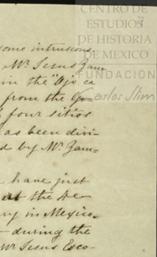 CENTRO DE
ESTUDIOS
DE HISTORIA
DE MEXICO
FUNDACIÓN
Carlos Slim
some intrusions
Mr. Jesus Gam-
in the "Ojo
from the
four sitios
as been divi-
d by Mr. Gam-
have just
at the De-
in Mexico
during the
Mr Jesus Esco-